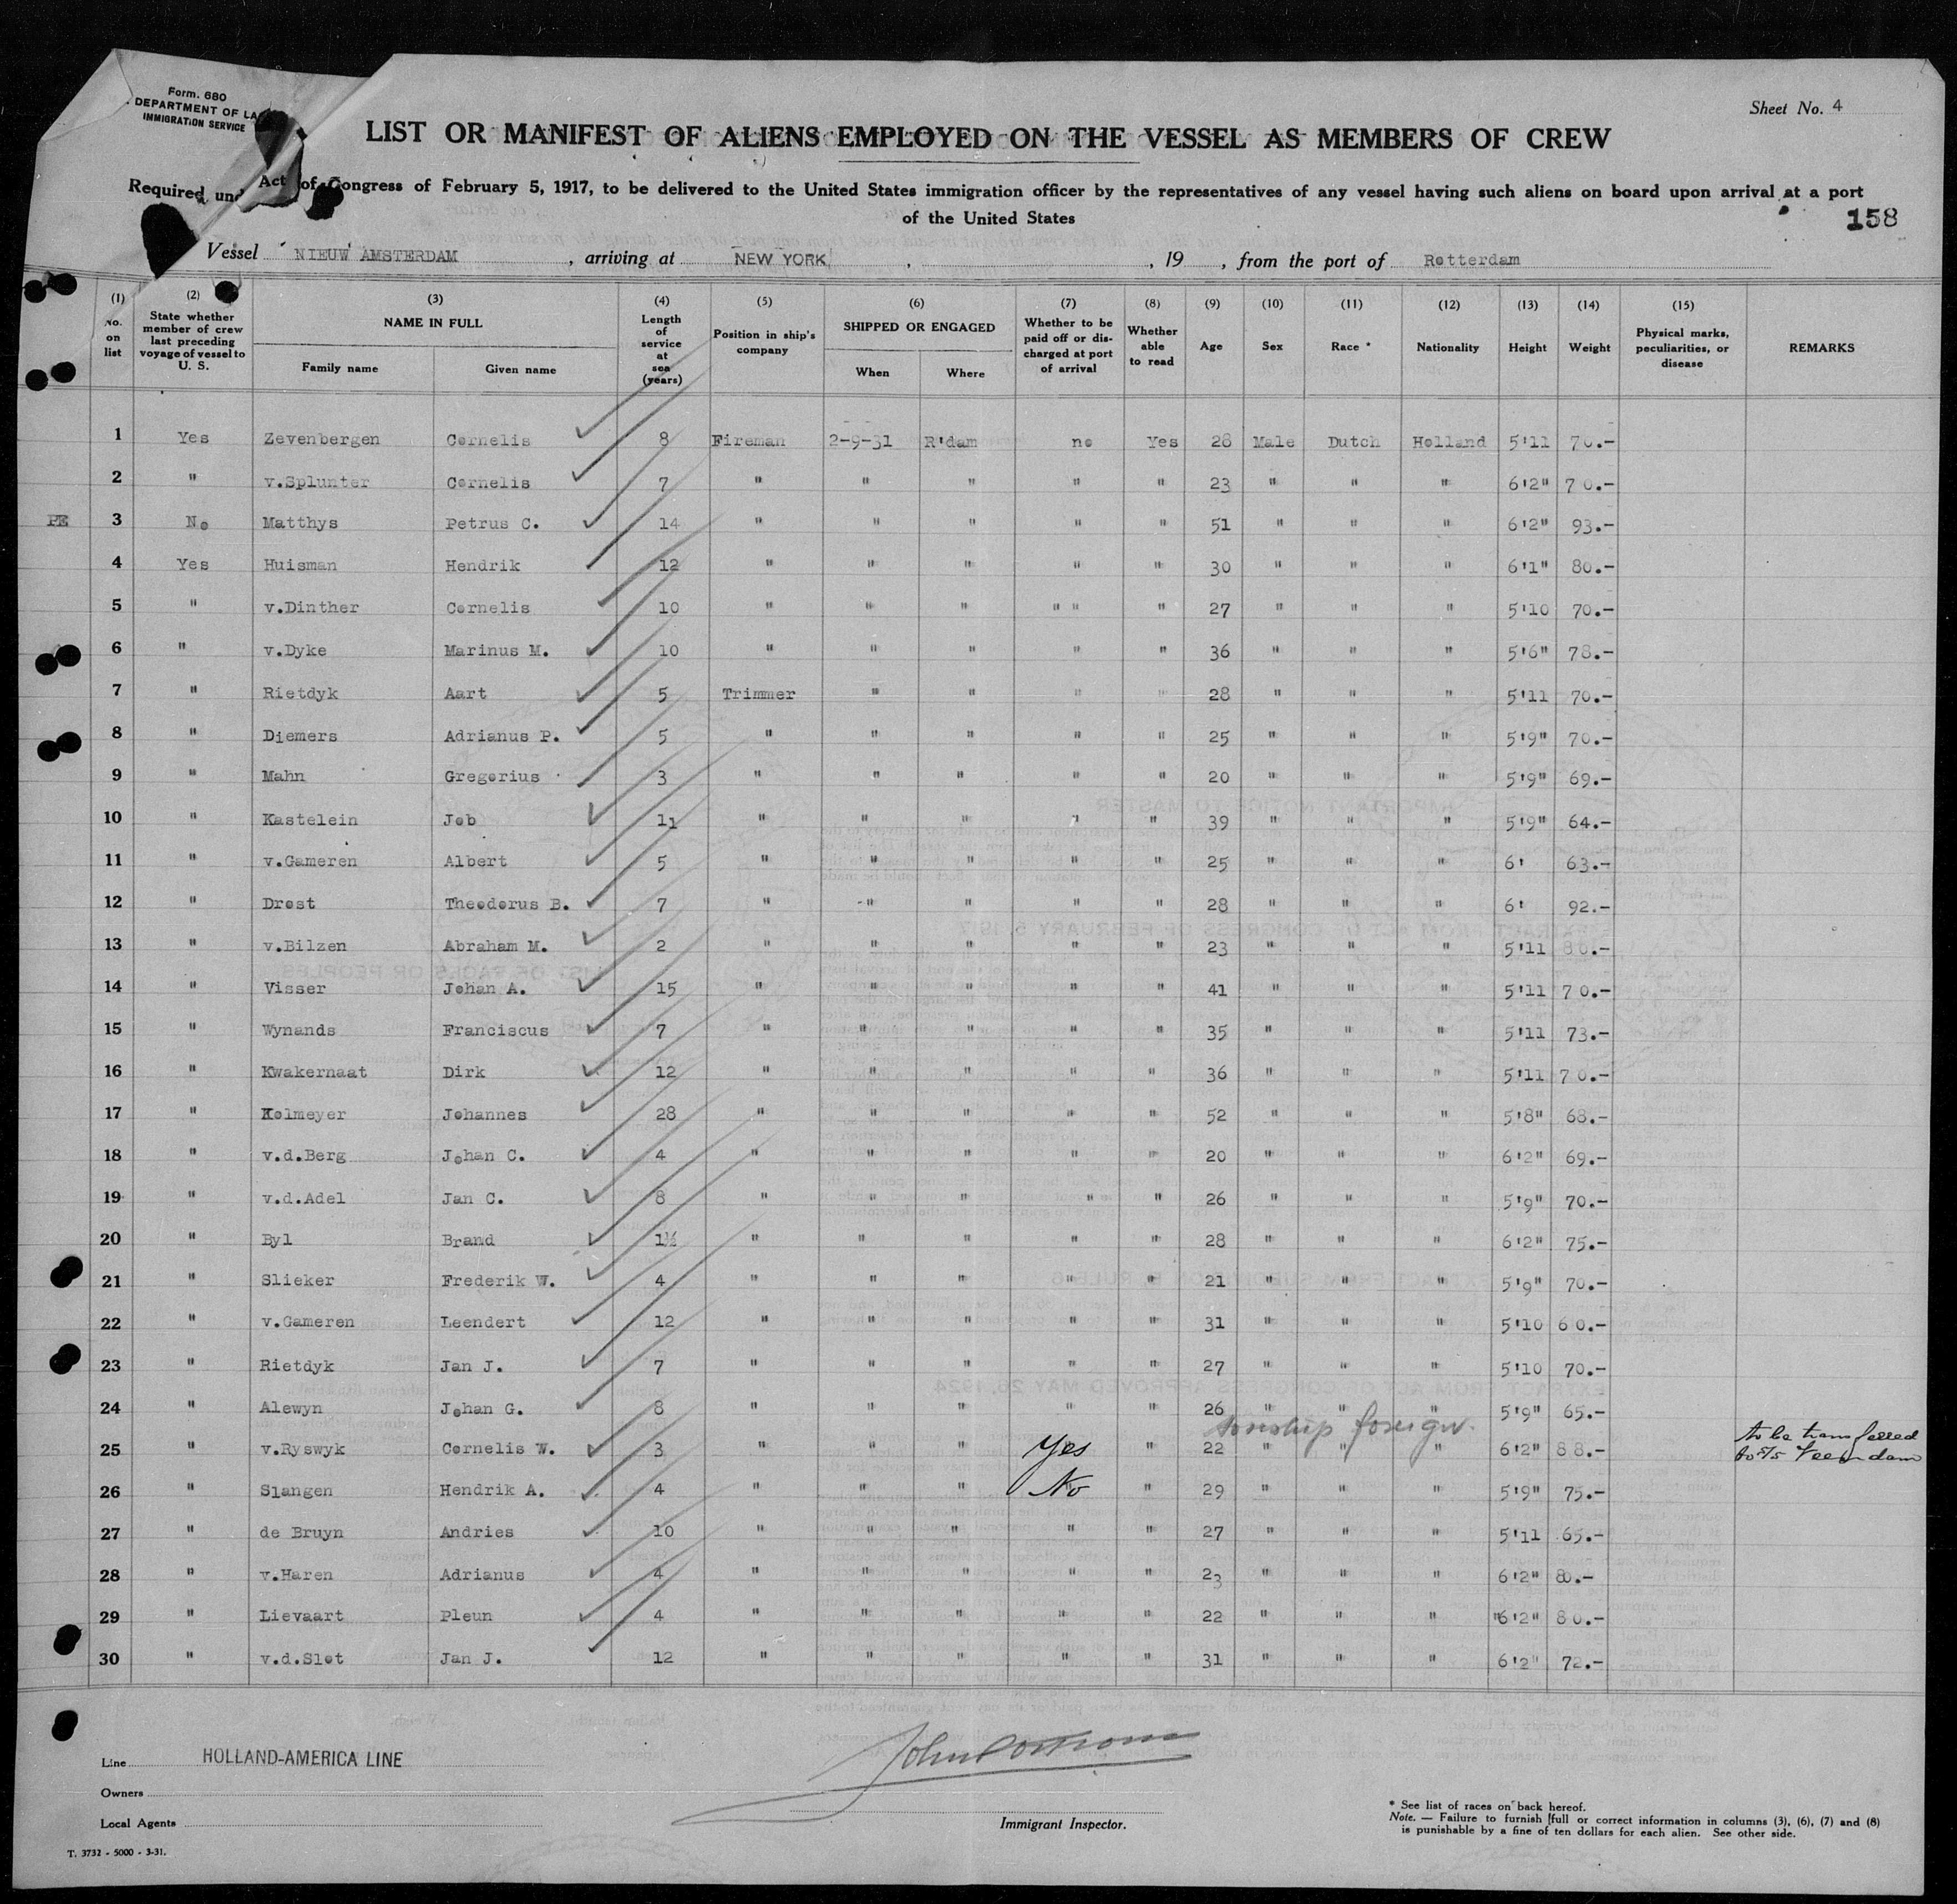 Form. 680
DEPARTMENT OF LA
IMMIGRATION SERVICE
Sheet No. 4
LIST OR MANIFEST OF ALIENS EMPLOYED ON THE VESSEL AS MEMBERS OF CREW
Required und Act of Congress of February 5, 1917, to be delivered to the United States immigration officer by the representatives of any vessel having such aliens on board upon arrival at a port
of the United States
158
Vessel NIEUW AMSTERDAM, arriving at NEW YORK, , 19 , from the port of Rotterdam
(1) No. on list (2) State whether member of crew last preceding voyage of vessel to U. S. (3) NAME IN FULL Family name Given name (4) Length of service at sea (years) (5) Position in ship's company (6) SHIPPED OR ENGAGED When Where (7) Whether to be paid off or discharged at port of arrival (8) Whether able to read (9) Age (10) Sex (11) Race * (12) Nationality (13) Height (14) Weight (15) Physical marks, peculiarities, or disease REMARKS
1 Yes Zevenbergen Cornelis 8 Fireman 2-9-31 R'dam no Yes 28 Male Dutch Holland 5'11 70.-
2 " v.Splunter Cornelis 7 " " " " " 23 " " " 6'2" 70.-
PE 3 No Matthys Petrus C. 14 " " " " " 51 " " " 6'2" 93.-
4 Yes Huisman Hendrik 12 " " " " " 30 " " " 6'1" 80.-
5 " v.Dinther Cornelis 10 " " " " " " 27 " " " 5'10 70.-
6 " v.Dyke Marinus M. 10 " " " " " 36 " " " 5'6" 78.-
7 " Rietdyk Aart 5 Trimmer " " " " 28 " " " 5'11 70.-
8 " Diemers Adrianus P. 5 " " " " " 25 " " " 5'9" 70.-
9 " Mahn Gregorius 3 " " " " " 20 " " " 5'9" 69.-
10 " Kastelein Job 11 " " " " " 39 " " " 5'9" 64.-
11 " v.Gameren Albert 5 " " " " " 25 " " " 6' 63.-
12 " Drost Theodorus B. 7 " " " " " 28 " " " 6' 92.-
13 " v.Bilzen Abraham M. 2 " " " " " 23 " " " 5'11 80.-
14 " Visser Johan A. 15 " " " " " 41 " " " 5'11 70.-
15 " Wynands Franciscus 7 " " " " " 35 " " " 5'11 73.-
16 " Kwakernaat Dirk 12 " " " " " 36 " " " 5'11 70.-
17 " Kolmeyer Johannes 28 " " " " " 52 " " " 5'8" 68.-
18 " v.d.Berg Johan C. 4 " " " " " 20 " " " 6'2" 69.-
19 " v.d.Adel Jan C. 8 " " " " " 26 " " " 5'9" 70.-
20 " Byl Brand 1½ " " " " " 28 " " " 6'2" 75.-
21 " Slieker Frederik W. 4 " " " " " 21 " " " 5'9" 70.-
22 " v.Gameren Leendert 12 " " " " " 31 " " " 5'10 60.-
23 " Rietdyk Jan J. 7 " " " " " 27 " " " 5'10 70.-
24 " Alewyn Johan G. 8 " " " " " 26 " " " 5'9" 65.-
foreign
25 " v.Ryswyk Cornelis W. 3 " " " Yes " 22 " " " 6'2" 88.- to be transferred to S/S Veendam
26 " Slangen Hendrik A. 4 " " " No " 29 " " " 5'9" 75.-
27 " de Bruyn Andries 10 " " " " " 27 " " " 5'11 65.-
28 " v.Haren Adrianus 4 " " " " " 23 " " " 6'2" 80.-
29 " Lievaart Pleun 4 " " " " " 22 " " " "6'2" 80.-
30 " v.d.Slot Jan J. 12 " " " " " 31 " " " 6'2" 72.-
Line HOLLAND-AMERICA LINE
Owners
Local Agents
Immigrant Inspector.
* See list of races on back hereof.
Note. — Failure to furnish full or correct information in columns (3), (6), (7) and (8)
is punishable by a fine of ten dollars for each alien. See other side.
T. 3732 - 5000 - 3-31.